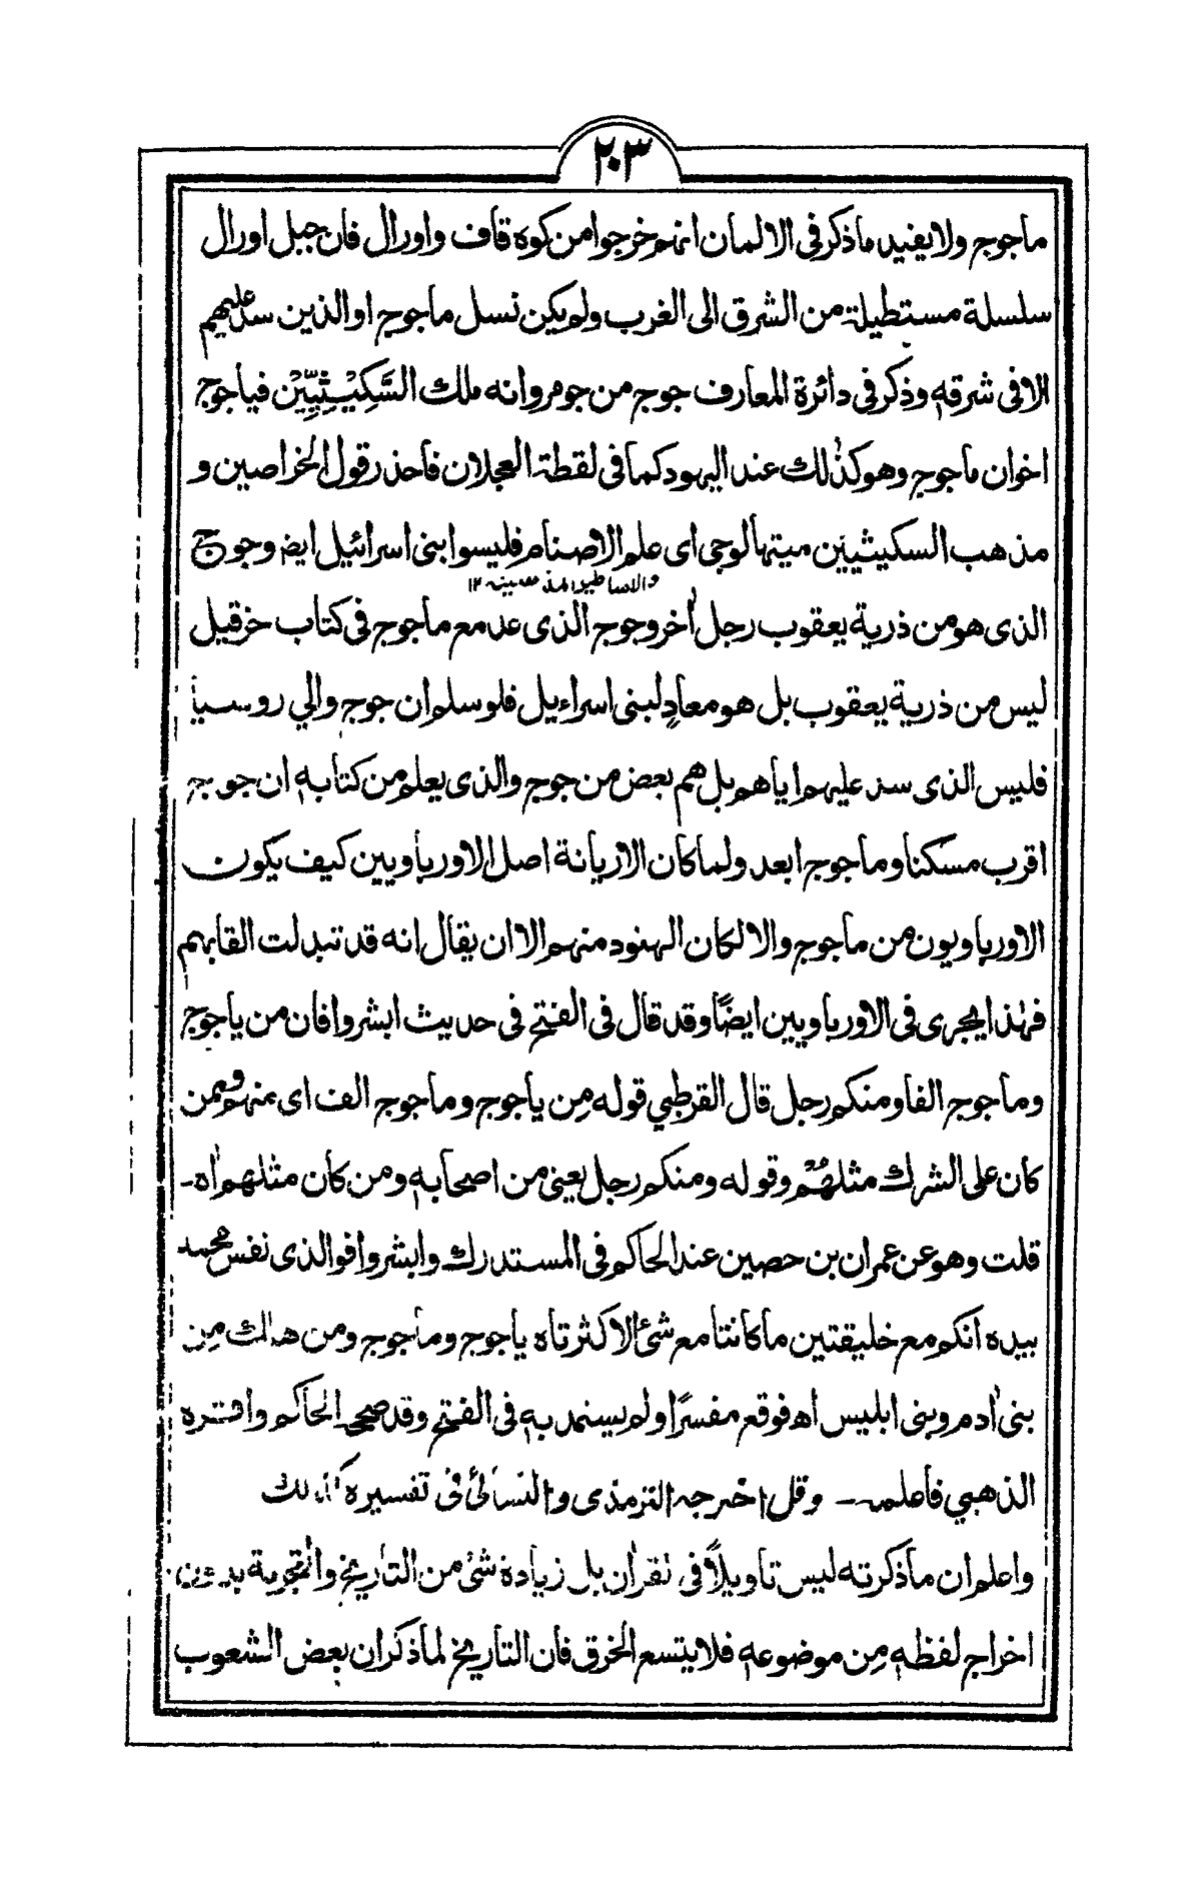 ٢٠٣
ماجوج ولا يفيد ماذكر فى الالمان انهم خرجوا من كوه قاف واورال فان جبل اورال
سلسلة مستطيلة من الشرق الى الغرب ولم يكن نسل ماجوج او الذين سد عليهم
الا فى شرقه وذكر فى دائرة المعارف جوج من جومر وانه ملك السَّكِيْثِيِّيْن فياجوج
اخوان ماجوج وهو كذٰلك عند اليهود كما فى لقطة العجلان فاحذر قول الخراصين و
مذهب السكيثيين ميتهالوجى اى علم الاصنام فليسوا بنى اسرائيل ايضا وجوج
والاساطير ١٢
الذى هو من ذرية يعقوب رجل اٰخر وجوج الذى عد مع ماجوج فى كتاب حزقيل
ليس من ذرية يعقوب بل هو معادٍ لبنى اسراءيل فلو سلم ان جوج والي روسيا
فليس الذى سد عليهم اياهم بل هم بعض من جوج والذى يعلم من كتابه ان جوج
اقرب مسكنا وماجوج ابعد ولما كان الاريانة اصل الاورباويين كيف يكون
الاورباويون من ماجوج والا لكان الهنود منهم الا ان يقال انه قد تبدلت القابهم
فهٰذا يجرى فى الاورباويين ايضًا وقد قال فى الفتح فى حديث ابشروا فان من ياجوج
وماجوج الفا ومنكم رجل قال القرطبي قوله مِن ياجوج وماجوج الف اى منهم وممن
كان على الشرك مثلهُمْ وقوله ومنكم رجل يعنى من اصحابه ومن كان مثلهم اٰه۔
قلت وهو عن عمران بن حصين عند الحاكم فى المستدرك وابشروا فوالذى نفس محمد
بيده انكم مع خليقتين ما كانتا مع شئ الا كثرتاه ياجوج وماجوج ومن هلك مِن
بنى اٰدم وبنى ابليس اه فوقع مفسرًا ولم يسنده به فى الفتح وقد صححه الحاكم واقره
الذهبي فاعلمه ۔ وقد اخرجه الترمذى والنسائى فى تفسيره كذلك
واعلم ان ماذكرته ليس تاويلًا فى القراٰن بل زيادة شئ من التاريخ والتجربة بدون
اخراج لفظه مِن موضوعه فلا يتسع الخرق فان التاريخ لما ذكر ان بعض الشعوب